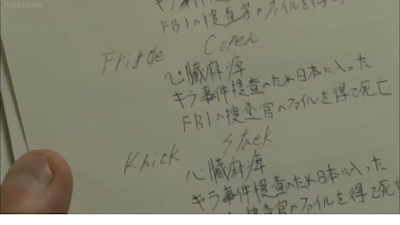 FBIの捜査官のファイルを得て死亡
Copen
心臓麻痺
キラ事件捜査のため日本に入った
FBIの捜査官のファイルを得て死亡
Knick Staek
心臓麻痺
キラ事件捜査のため日本に入った
の捜査官のファイルを得て死亡